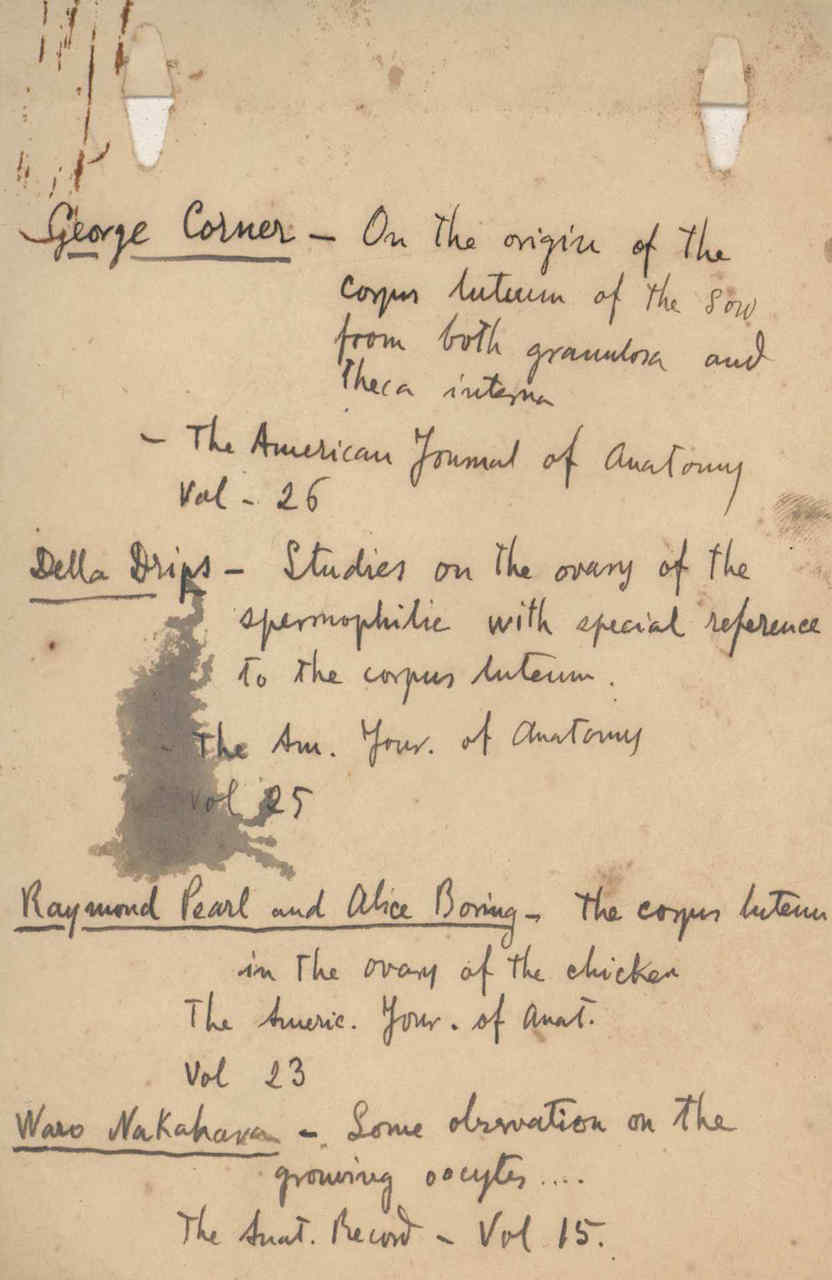 George Corner – On the origin of the
corpus luteum of the Sow
from both granulosa and
theca interna
– The American Journal of Anatomy
Vol – 26
Della Drips – Studies on the ovary of the
spermophilic with special reference
to the corpus luteum.
– The Am. Jour. of Anatomy
Vol 25
Raymond Pearl and Alice Boring – the corpus luteum
in the ovary of the chicken
The Americ. Jour. of Anat.
Vol 23
Waro Nakahara – Some observation on the
growing oocytes ....
The Anat. Record – Vol 15.